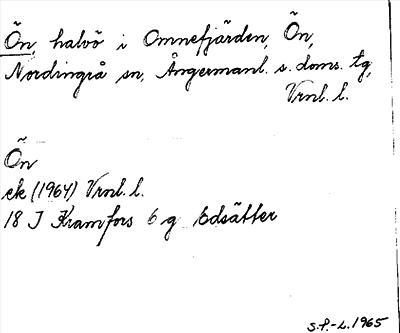 Ön, halvö i Omnefjärden, Ön,
Nordingrå sn, Ångermanl. s. doms. tg,
Vrnl. l.
Ön
ek (1964) Vrnl. l.
18 J Kramfors 6 g Edsätter
S.P.-L. 1965